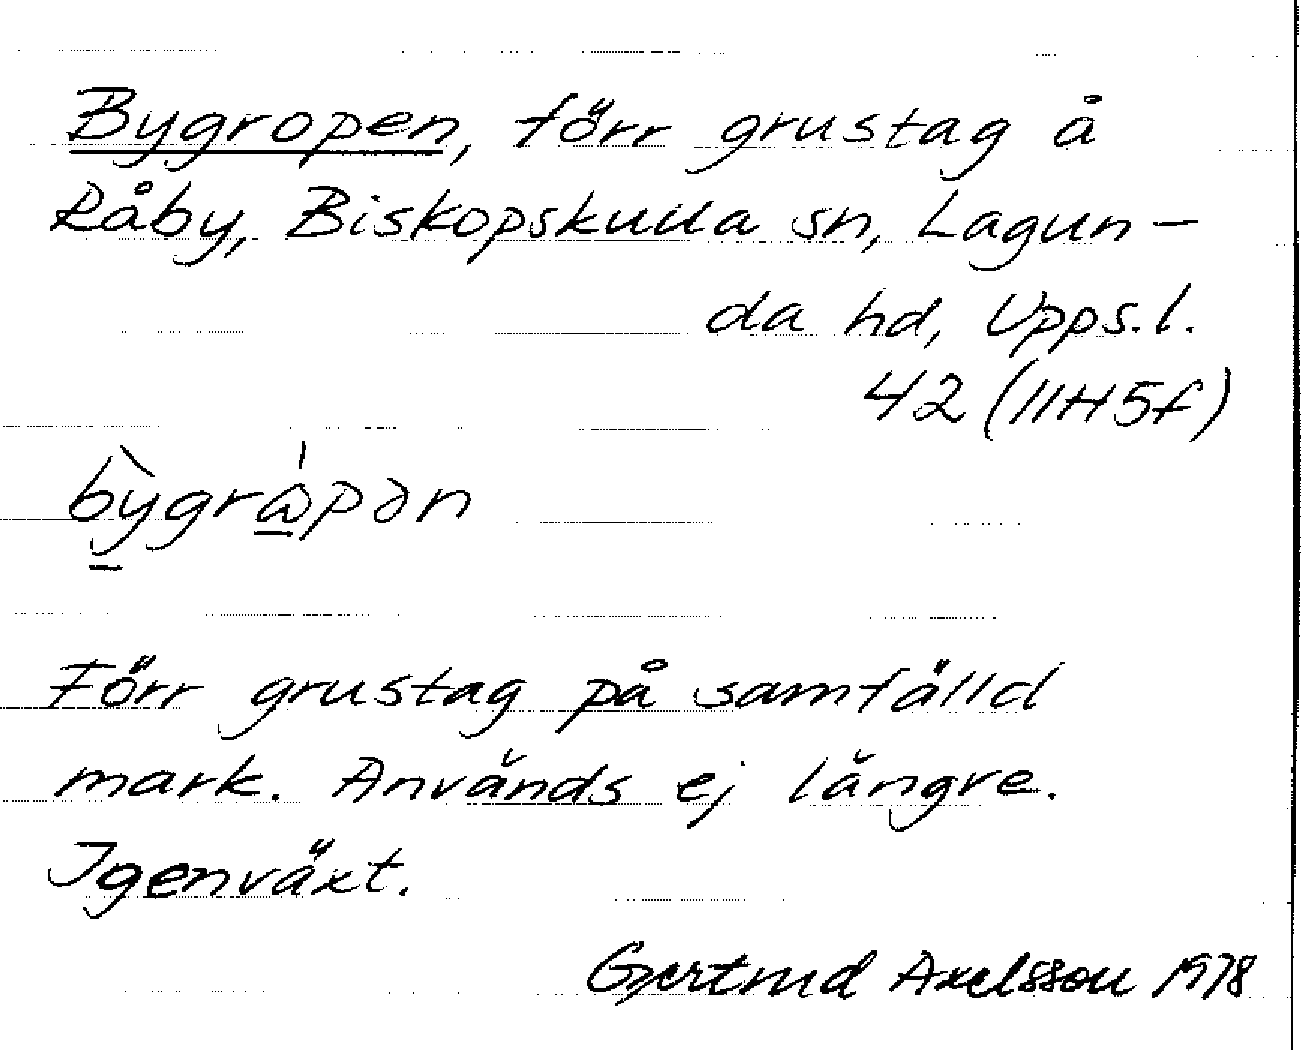 Bygropen, förr grustag å
Råby, Biskopskulla sn, Lagun-
da hd, Upps.l.
42 (11H5f)
bỳgrⱺ́pən
Förr grustag på samfälld
mark. Används ej längre.
Igenväxt.
Gjertrud Axelsson 1978